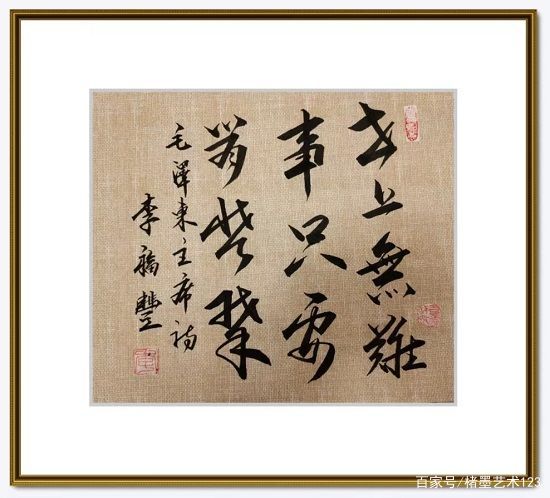 世上無難
事只要
肯登攀
毛澤東主席詩
李福豐
百家号/楮墨艺术123